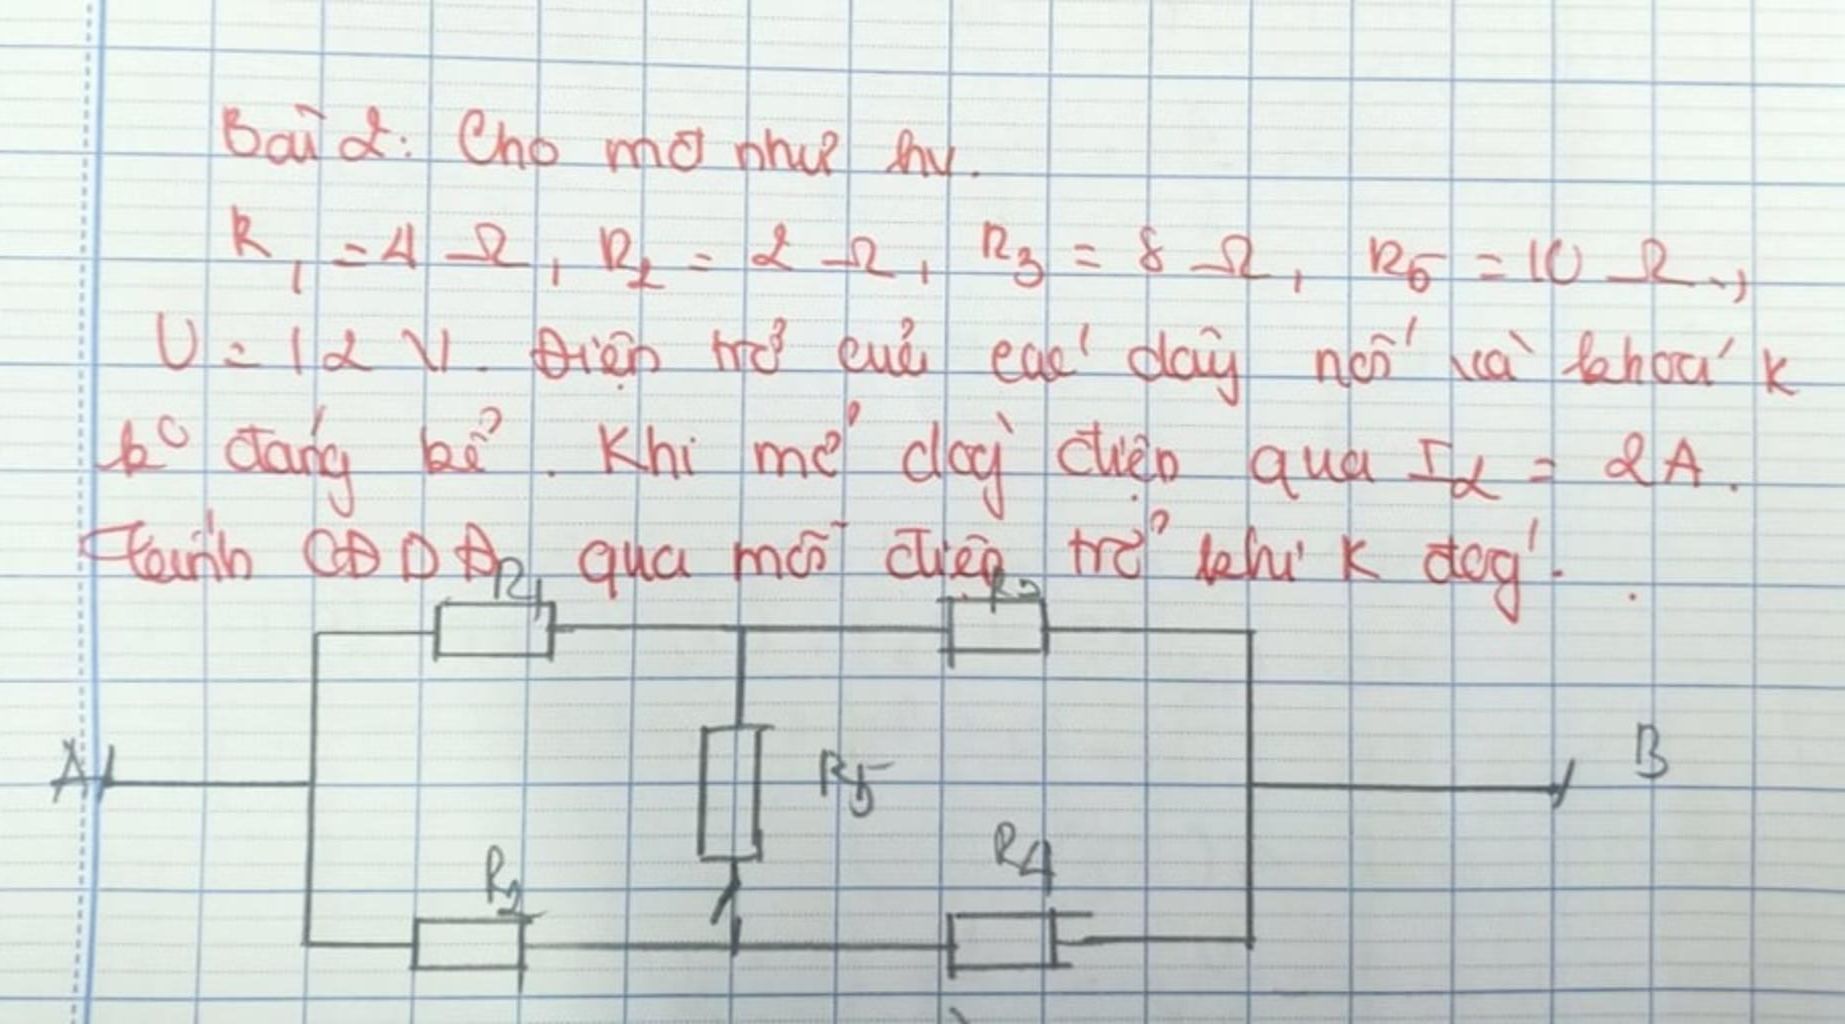 Bài 2: Cho mđ như hv.
R1 = 4 Ω, R2 = 2 Ω, R3 = 8 Ω, R5 = 10 Ω,
U = 12 V. Điện trở của các dây nối và khoá K
ko đáng kể. Khi mở dòng điện qua I2 = 2A.
Tính CĐDĐ qua mỗi điện trở khi K đóng.
R1
R3
A
B
R5
R4
R2